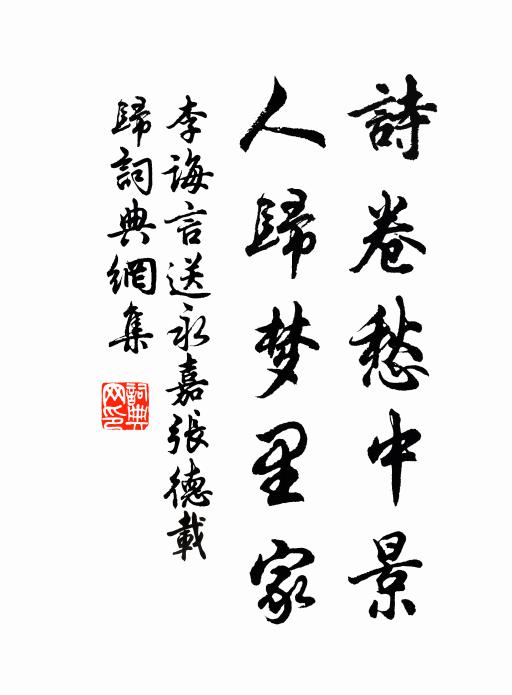 詩卷愁中景
人歸梦里家
李誨言送永嘉張德載
歸詞典網集
詞典
网印